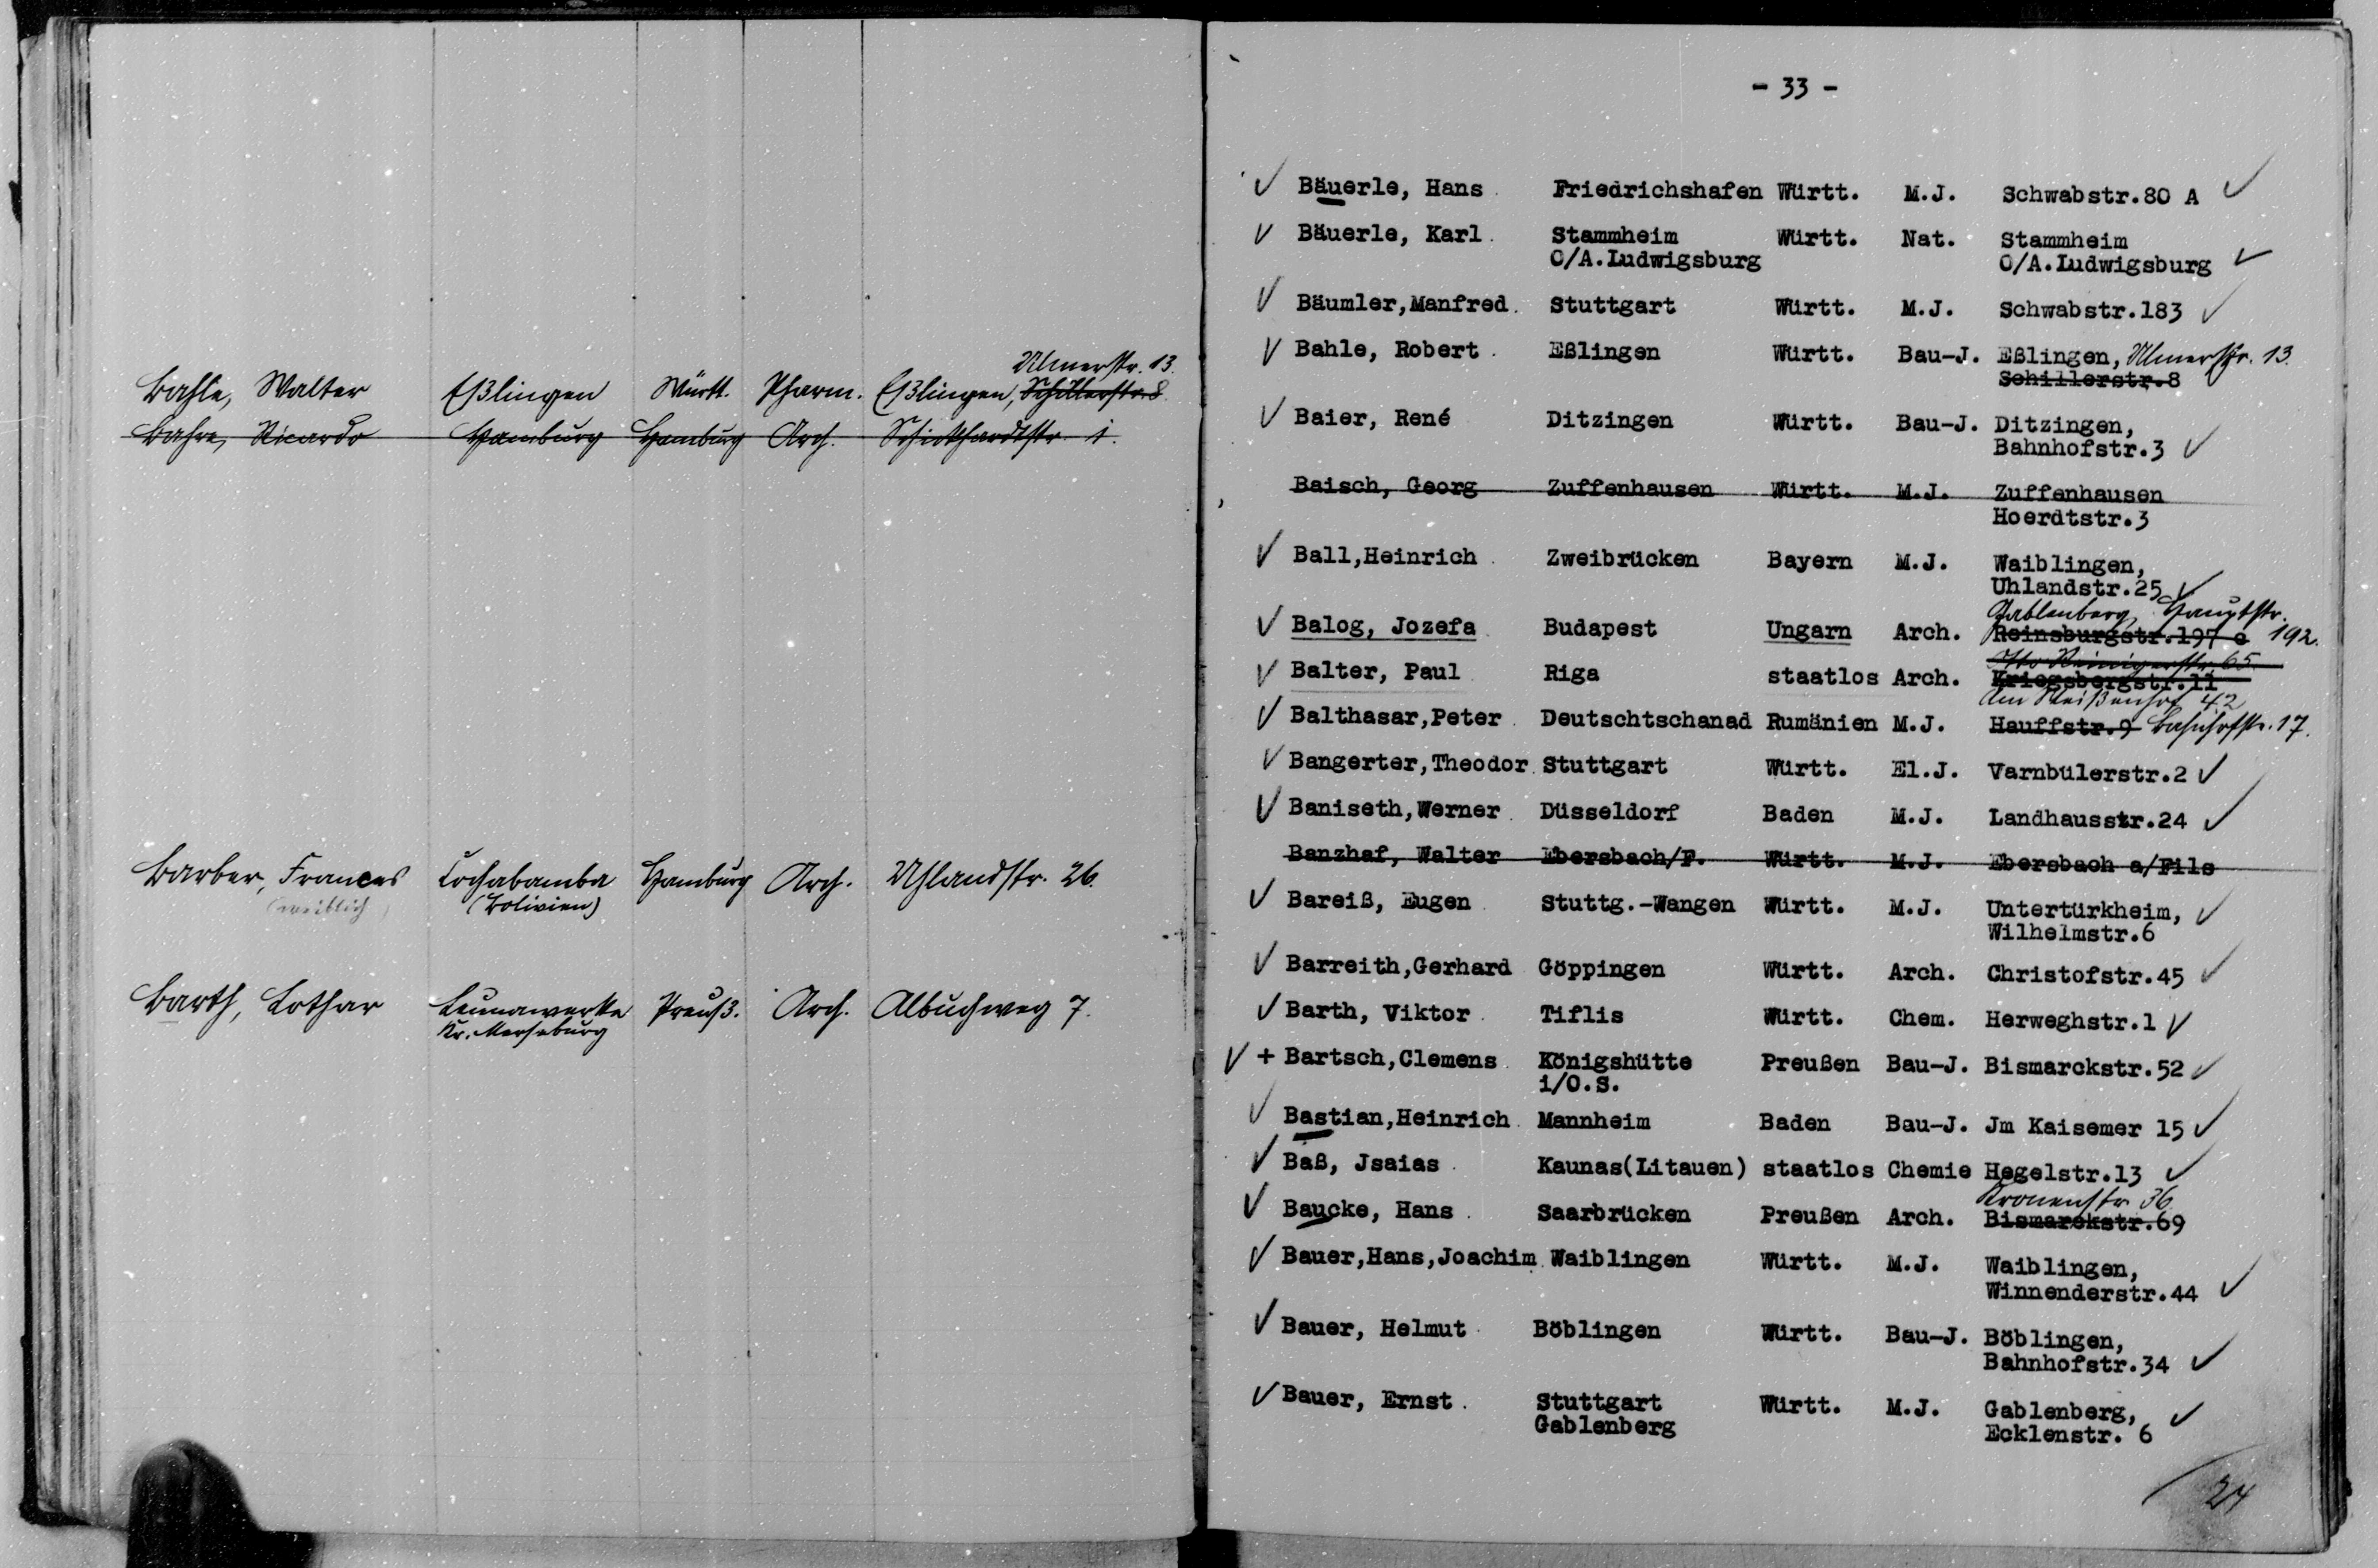 Ulmerstr. 13.
Bahle, Walter Eßlingen Württ. Pharm. Eßlingen, Schillerstr. 8
Bahre, Ricardo Hamburg Hamburg Arch. Schickhardtstr. 1.
Barber, Frances Cochabamba Hamburg Arch. Uhlandstr. 26.
(weiblich) (Bolivien)
Barth, Lothar Leunawerke Preuß. Arch. Albuchweg 7.
Kr. Merseburg
- 33 -
Bäuerle, Hans Friedrichshafen Württ. M.J. Schwabstr.80 A
Bäuerle, Karl Stammheim Württ. Nat. Stammheim
O/A.Ludwigsburg O/A.Ludwigsburg
Bäumler,Manfred Stuttgart Württ. M.J. Schwabstr.183
Bahle, Robert Eßlingen Württ. Bau-J. Eßlingen, Ulmerstr. 13.
Schillerstr.8
Baier, René Ditzingen Württ. Bau-J. Ditzingen,
Bahnhofstr.3
Baisch, Georg Zuffenhausen Württ. M.J. Zuffenhausen
Hoerdtstr.3
Ball,Heinrich Zweibrücken Bayern M.J. Waiblingen,
Uhlandstr.25
Gablenberg, Hauptstr.
Balog, Jozefa Budapest Ungarn Arch. Reinsburgstr.197 c 192.
Otto Reinigerstr. 65.
Balter, Paul Riga staatlos Arch. Kriegsbergstr.11
Am Weißenhof 42
Balthasar,Peter Deutschtschanad Rumänien M.J. Hauffstr.9 Bahnhofstr. 17.
Bangerter,Theodor Stuttgart Württ. El.J. Varnbülerstr.2
Baniseth,Werner Düsseldorf Baden M.J. Landhausstr.24
Banzhaf, Walter Ebersbach/F. Württ. M.J. Ebersbach a/Fils
Bareiß, Eugen Stuttg.-Wangen Württ. M.J. Untertürkheim,
Wilhelmstr.6
Barreith,Gerhard Göppingen Württ. Arch. Christofstr.45
Barth, Viktor Tiflis Württ. Chem. Herweghstr.1
+ Bartsch,Clemens Königshütte Preußen Bau-J. Bismarckstr.52
i/O.S.
Bastian,Heinrich Mannheim Baden Bau-J. Jm Kaisemer 15
Baß, Jsaias Kaunas(Litauen) staatlos Chemie Hegelstr.13
Kronenstr. 36
Baucke, Hans Saarbrücken Preußen Arch. Bismarckstr.69
Bauer,Hans,Joachim Waiblingen Württ. M.J. Waiblingen,
Winnenderstr.44
Bauer, Helmut Böblingen Württ. Bau-J. Böblingen,
Bahnhofstr.34
Bauer, Ernst Stuttgart Württ. M.J. Gablenberg,
Gablenberg Ecklenstr. 6
24